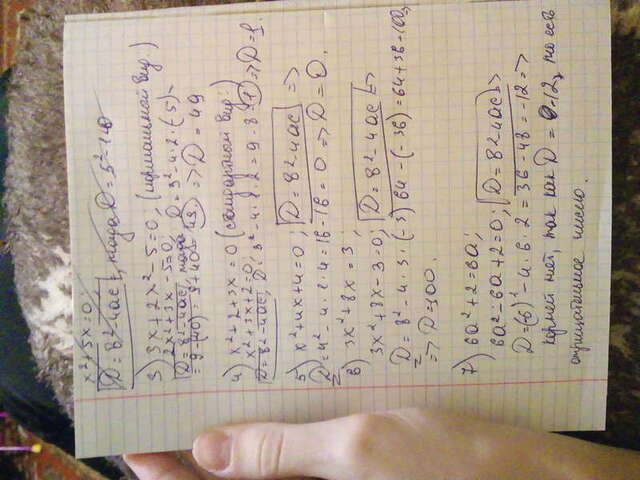 x²+5x=0,
D=в²-4ac, тогда D=5²-1·0
3) 3x+2x²-5=0, (нормальной вид.)
2x²+3x-5=0,
D=в²-4ac, тогда D=3²-4·2·(-5)=
=9-(40)=9+40=49. => D=49
4) x²+2+3x=0 (стандартной вид.)
x²+3x+2=0;
D=в²-4ac; D=3²-4·1·2=9-8=1 => D=1.
5) x²+4x+4=0; D=в²-4ac =>
D=4²-4·1·4=16-16=0 => D=0.
6) 3x²+8x=3;
3x²+8x-3=0; D=в²-4ac =>
D=8²-4·3·(-3) 64-(-36)=64+36=100,
=> D=100.
7) 6a²+2=6a;
6a²-6a+2=0; D=в²-4ac =>
D=(-6)²-4·6·2=36-48=-12 =>
корней нет, так как D=-12, то есть
отрицательное число.